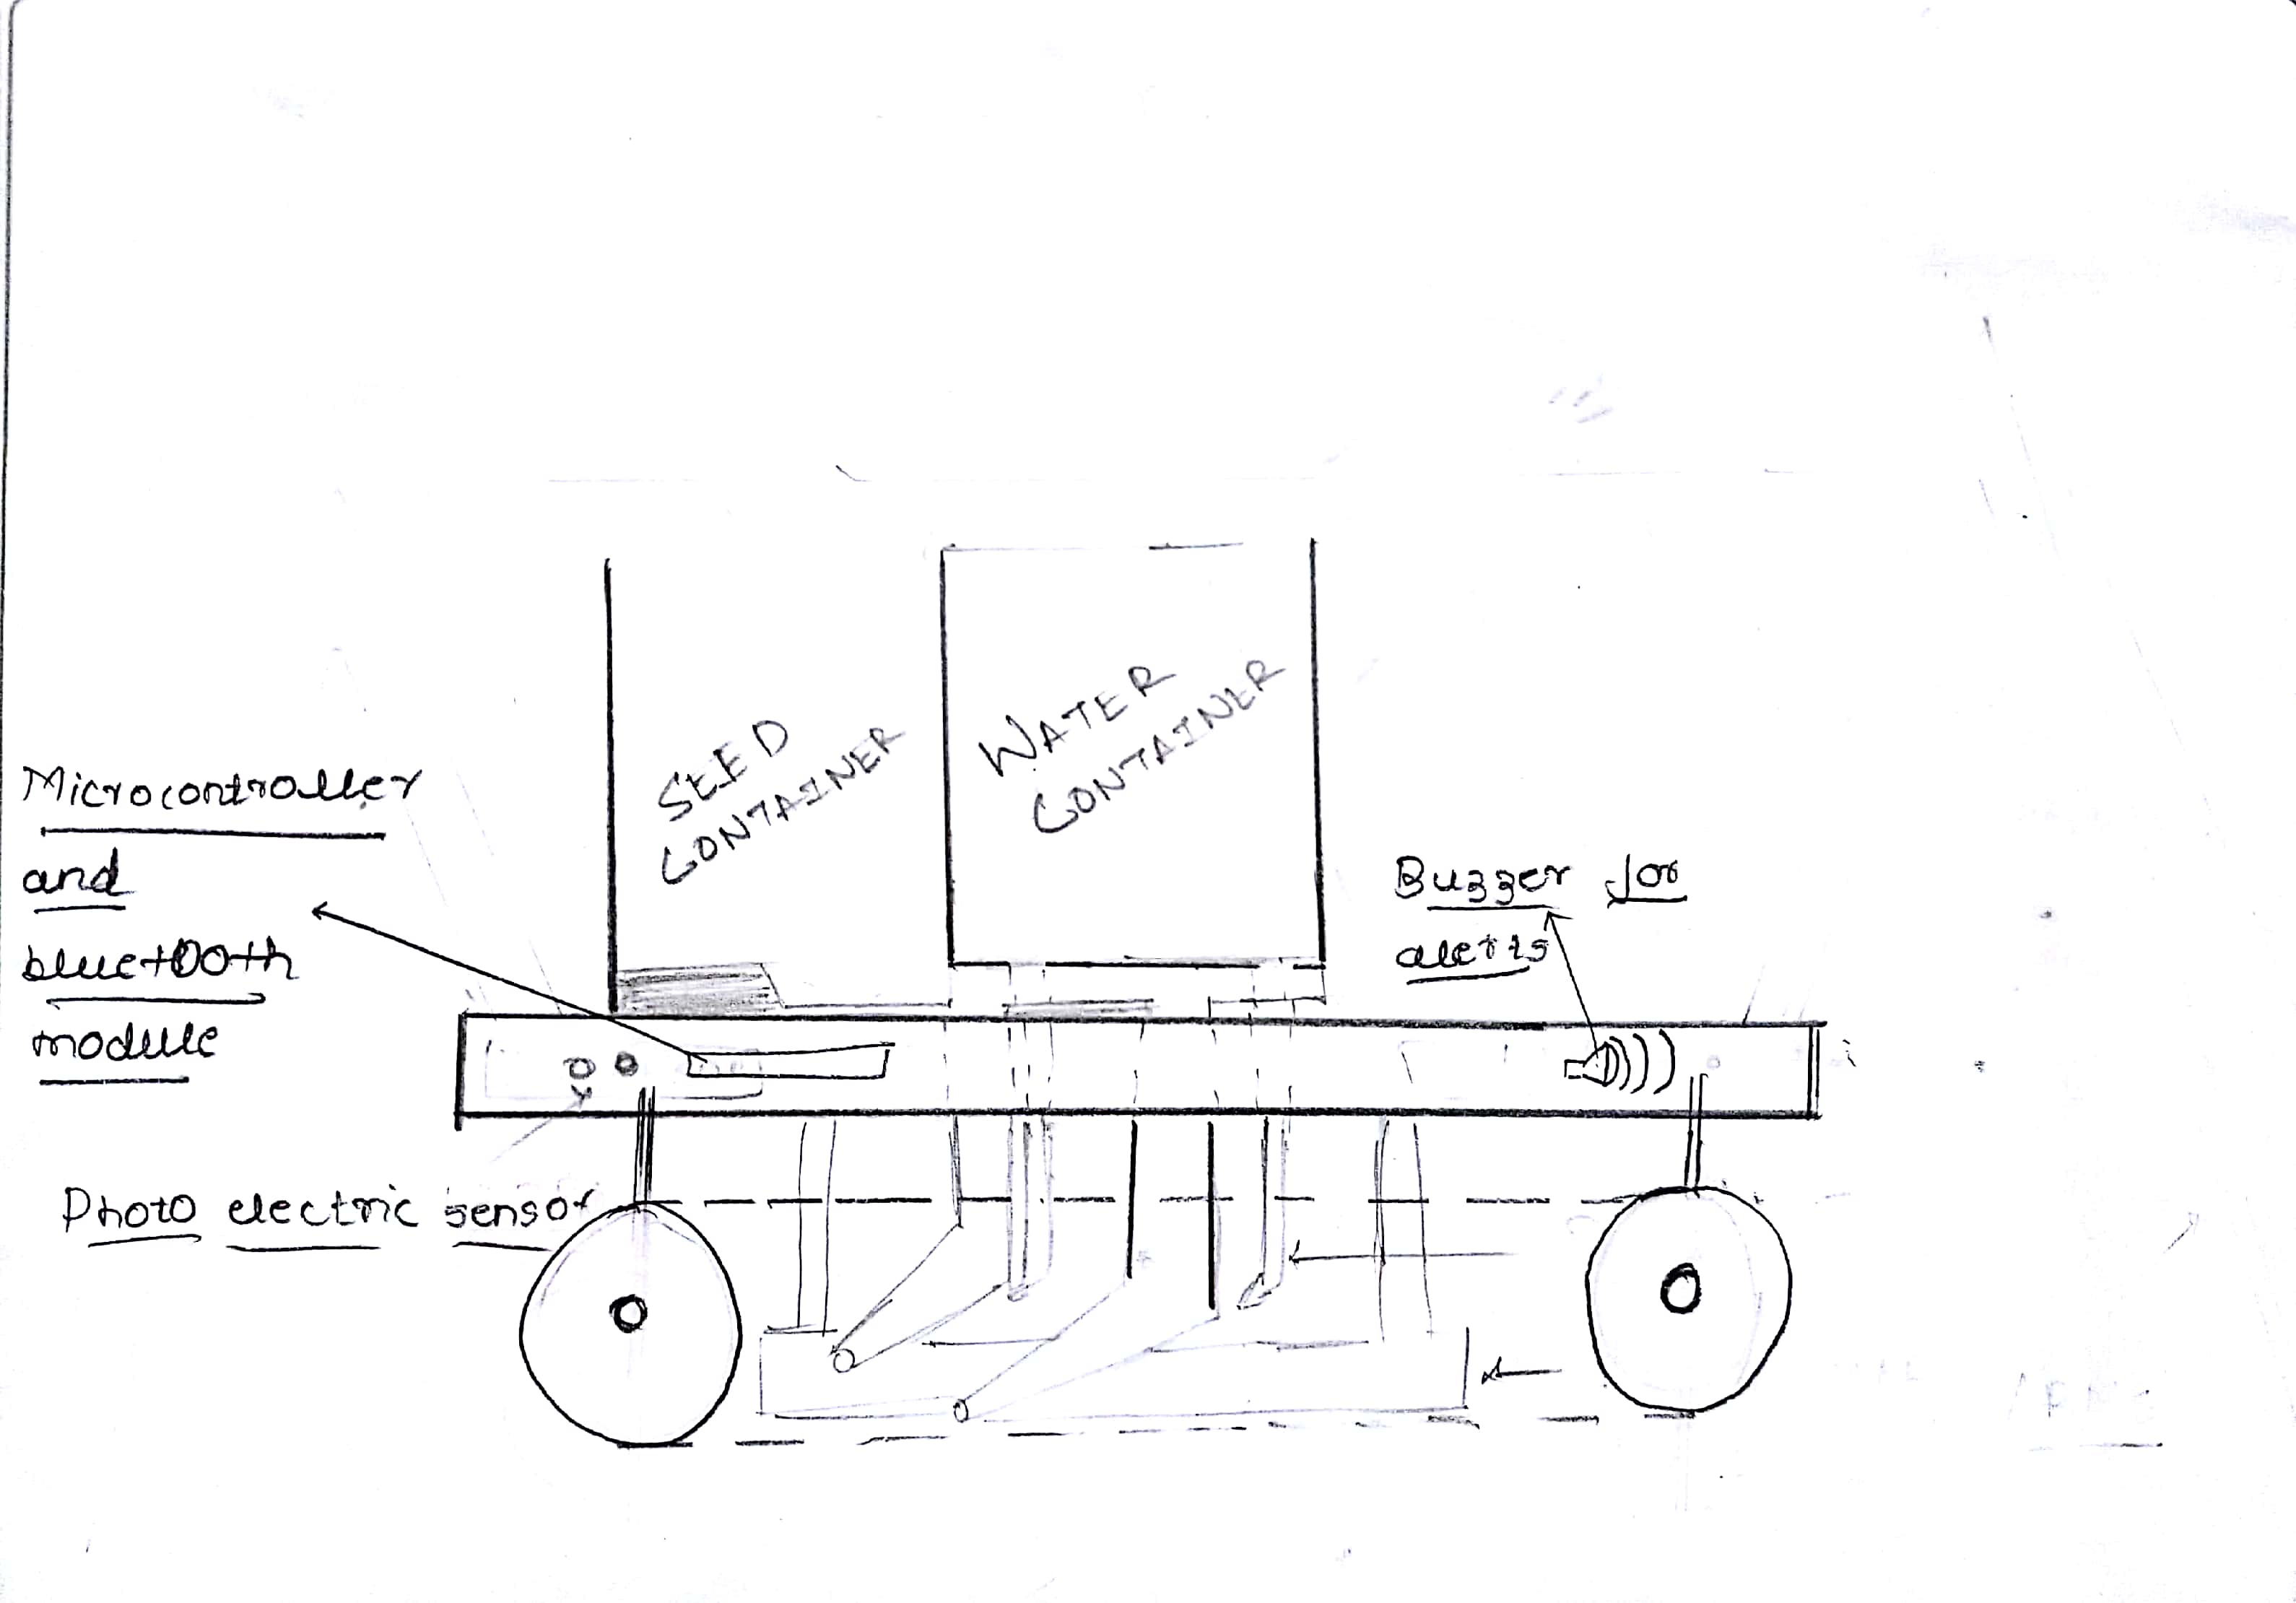 SEED
CONTAINER
WATER
CONTAINER
Microcontroller
and
bluetooth
module
Buzzer for
alerts
Photo electric sensor